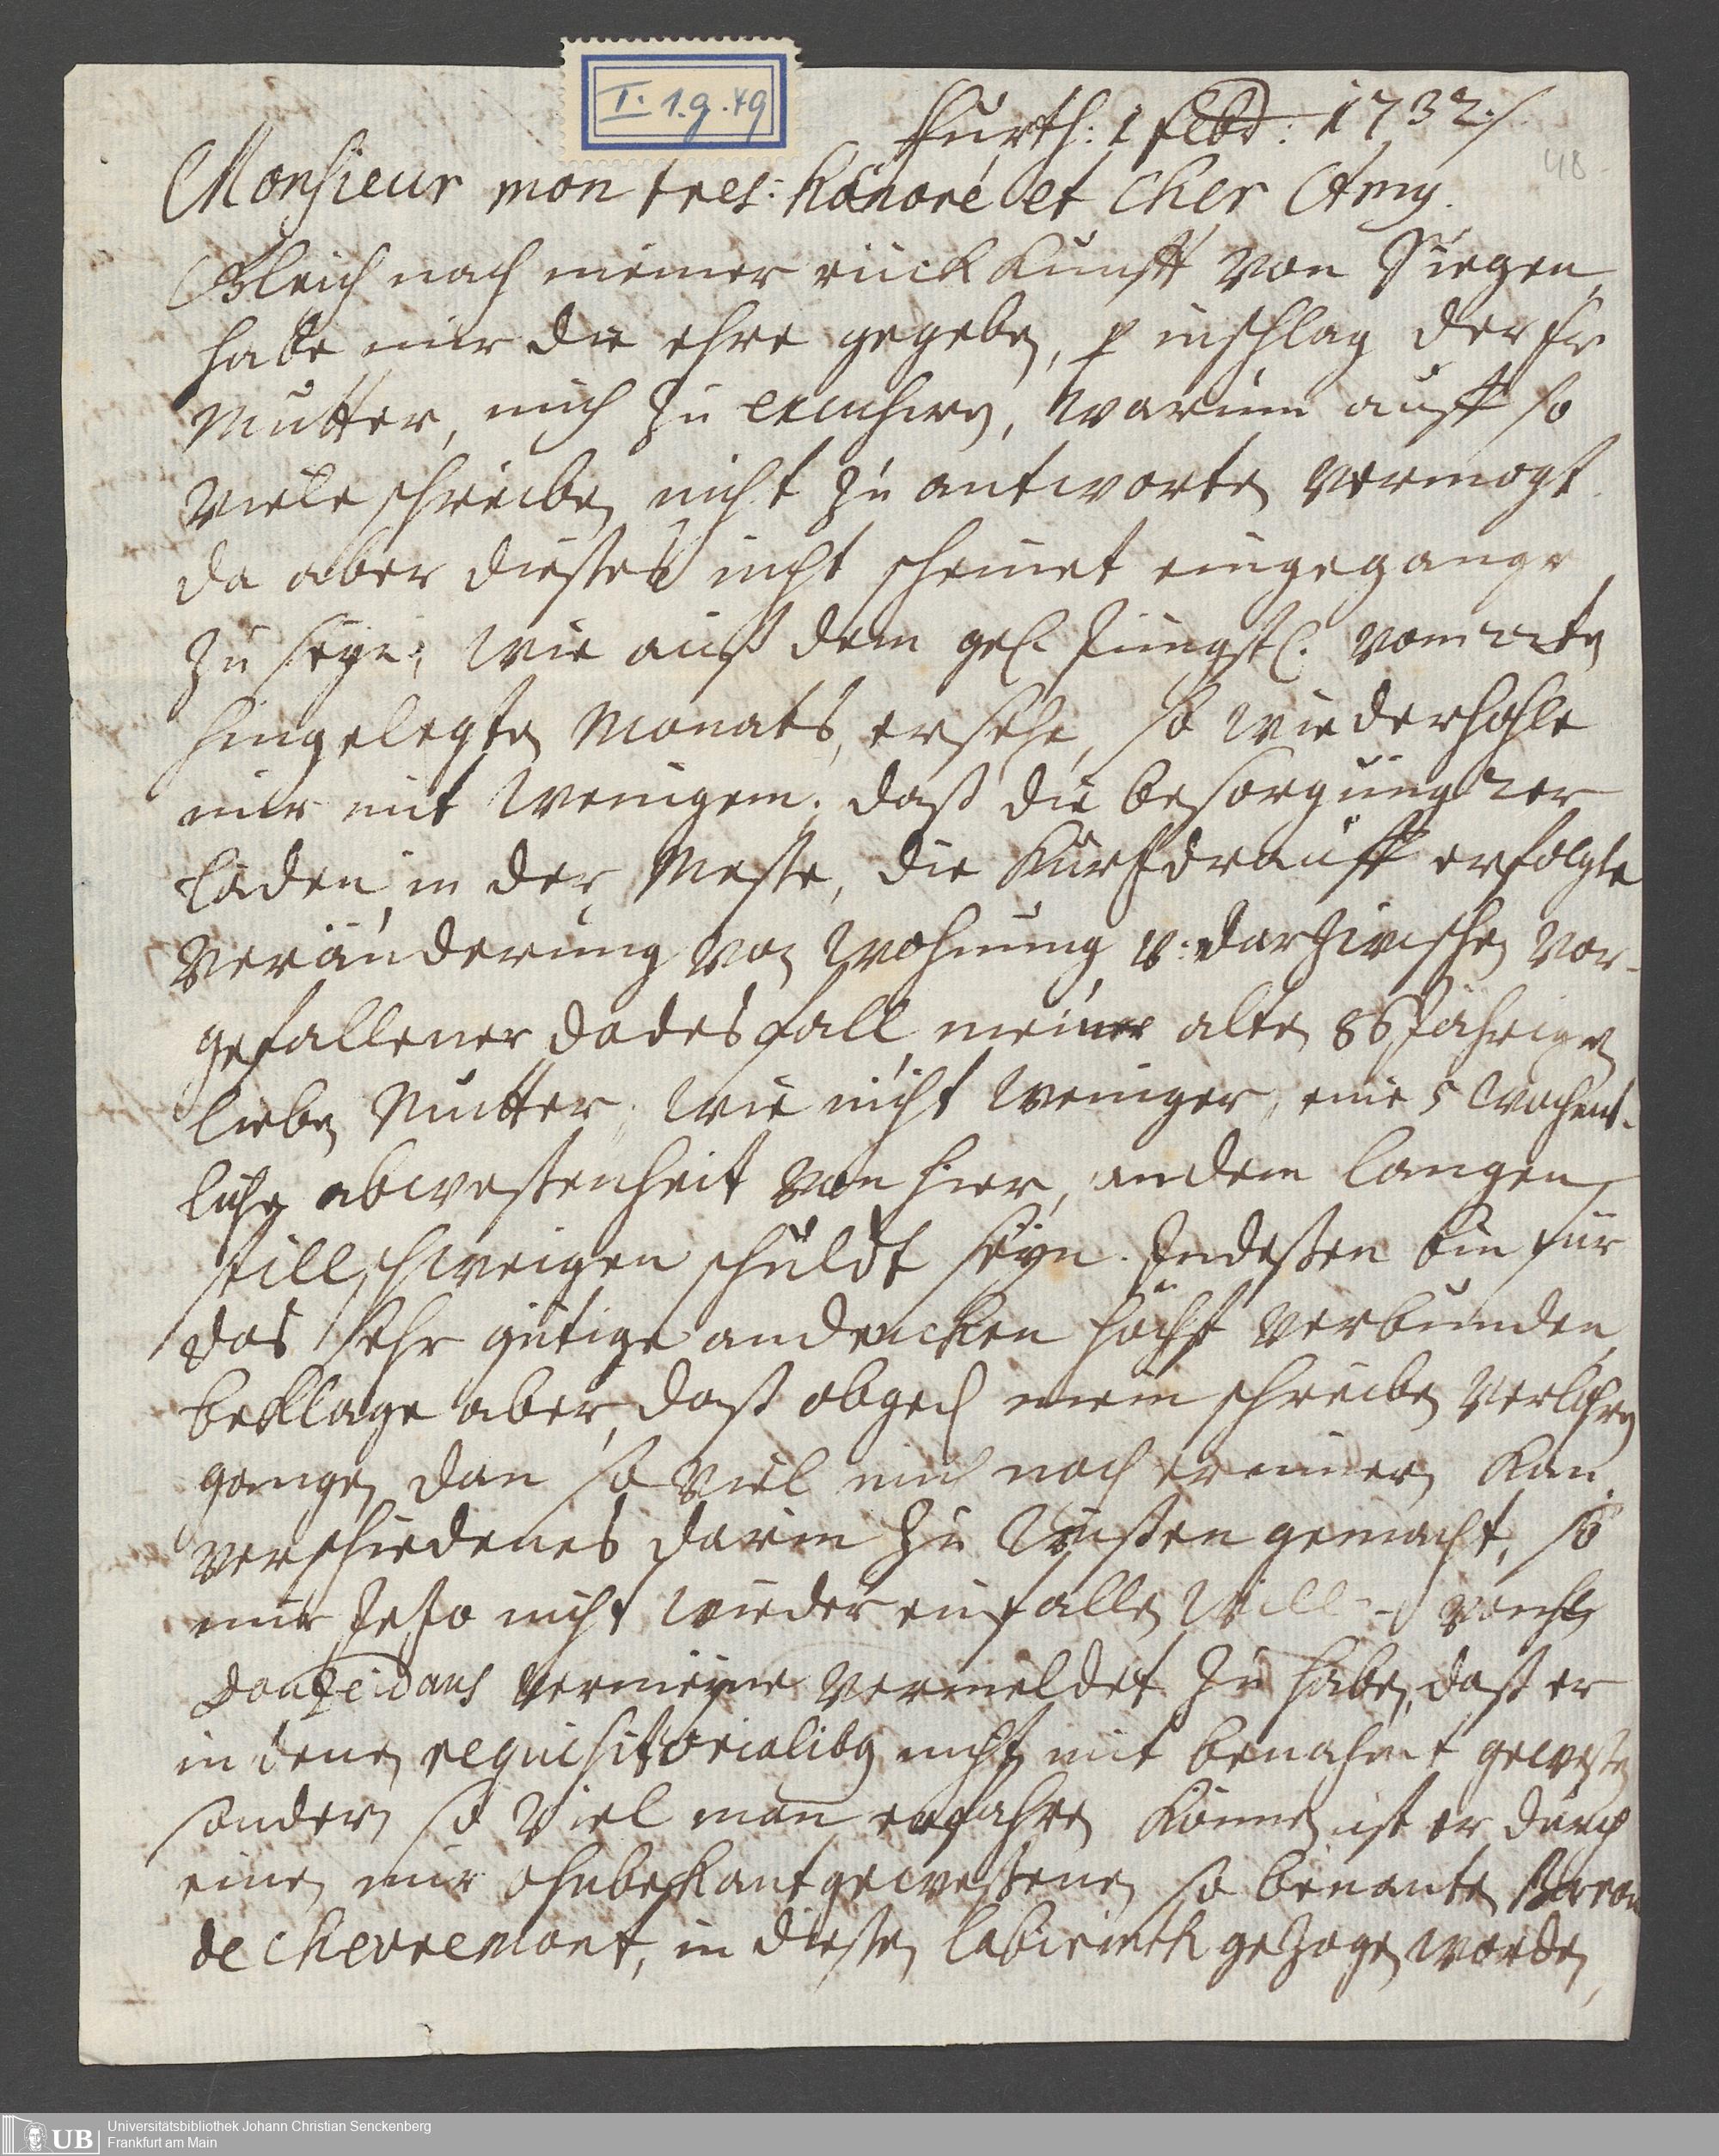 I. 1.g.49
furth: 1 febr: 1732./.
48
Monsieur mon tres: honoré et cher Amy.
Gleich nach meiner rückkunfft von Siegen,
habe mir die ehre gegeben, p inschlag der fr
Mutter, mich zu excusiren, warum auff so
viele schreiben nicht zu antworten vermogt.
da aber dießes nicht scheinet eingegangen
zu seyn; wie auß dem gel. jüngst. vom 22ten
hingelegten Monats, ersehe, so wiederhohle
mir mit wenigem. daß die besorgung der
läden in der Messe, die kurtz drauff erfolgte
veränderung von wohnung, u. darzwischen vor-
gefallener dodesfall meiner alten 86 Jährigen
lieben Mutter, wie nicht weniger, eine 5 wochent-
liche abweßenheit von hier, an dem langen
stillschweigen schuldt seyn. Indeßen bin für
das sehr gütige andencken höchst verbunden,
beklage aber, daß obged mein schreiben verlohren
gangen, dan so viel mich noch erinnern kan,
verschiedenes darin zu wißen gemacht, so
mir jetzo nicht wieder einfallen will
vermeyne vermeldet zu haben, daß er
in denen requisitorialibus nicht mit benahmt geweßen
sondern so viel man erfahren können, ist er durch
einen mir ohnbekant geweßenen so benanten Baron
de Chevremont, in dießen labirinth gezogen worden,
UB
Universitätsbibliothek Johann Christian Senckenberg
Frankfurt am Main